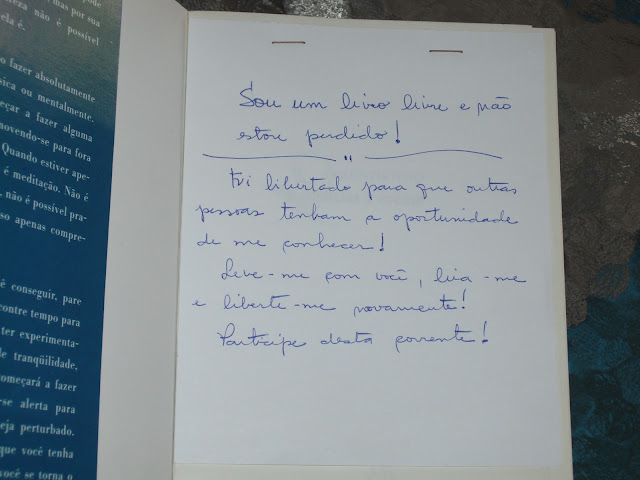 pode
mas por sua
reza não é possível
ela é.
o fazer absolutamente
sica ou mentalmente.
eçar a fazer alguma
movendo-se para fora
Quando estiver ape-
é meditação. Não é
, não é possível pra-
so apenas compre-
ê conseguir, pare
contre tempo para
ter experimenta-
de tranqüilidade,
omeçará a fazer
-se alerta para
eja perturbado.
que você tenha
você se torna o
Sou um livro livre e não
estou perdido!
Fui libertado para que outras
pessoas tenham a oportunidade
de me conhecer!
Leve-me com você, leia-me
e liberte-me novamente!
Participe desta corrente!